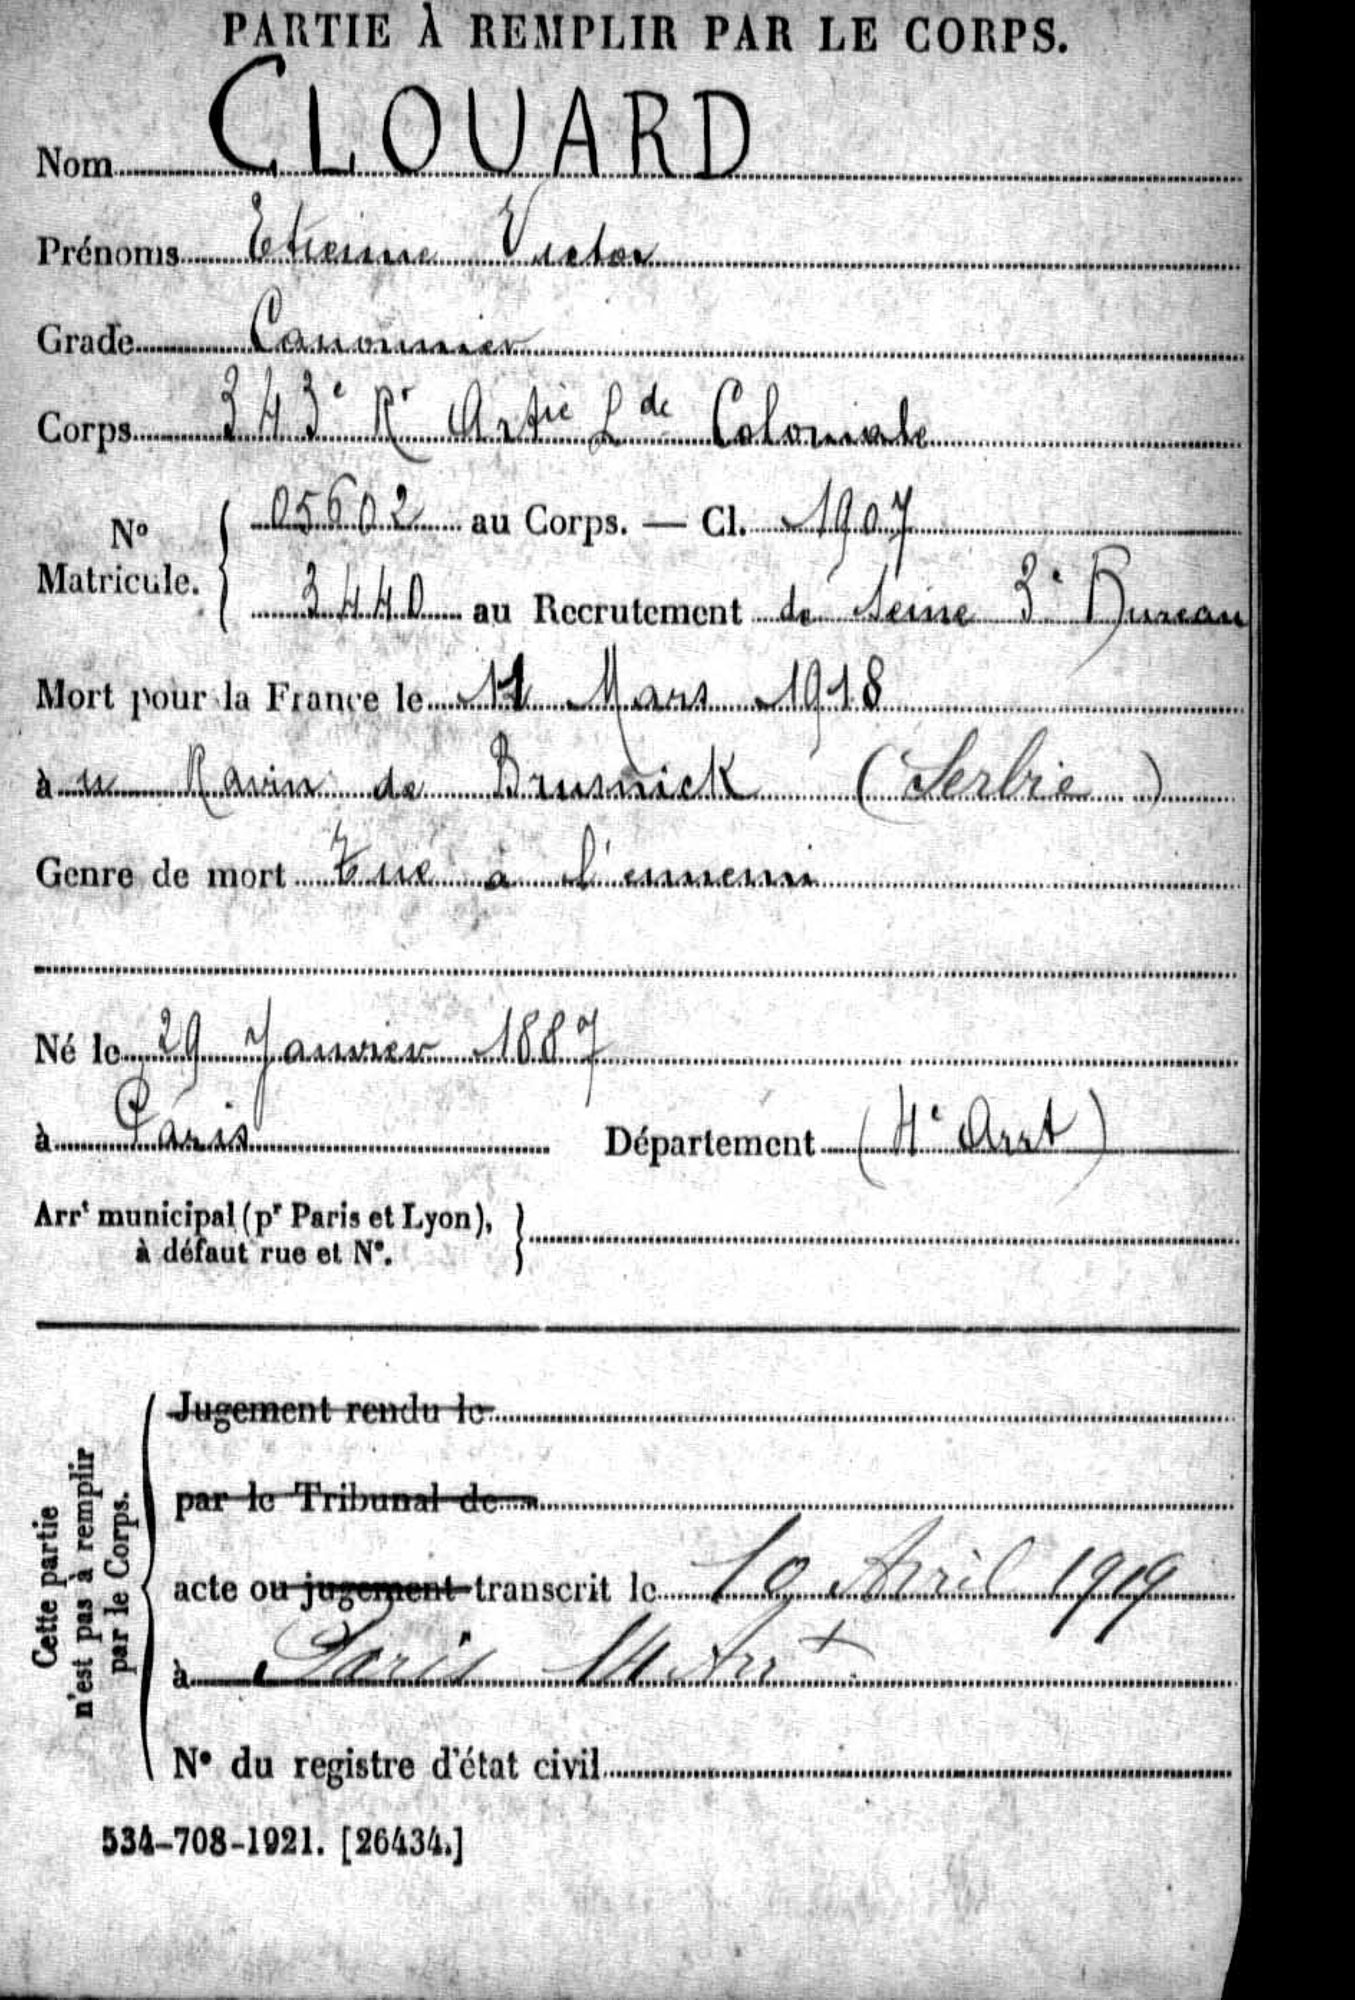 PARTIE À REMPLIR PAR LE CORPS.
Nom CLOUARD
Prénoms Etienne Victor
Grade Canonnier
Corps 343e Rt Artie Lde Coloniale
No Matricule. { 05602 au Corps. — Cl. 1907
3440 au Recrutement de Seine 3e Bureau
Mort pour la France le 11 Mars 1918
au Ravin de Brusnick (Serbie)
Genre de mort Tué à l'ennemi
Né le 29 Janvier 1887
à Paris Département (4e Arrt)
Arrt municipal (pr Paris et Lyon),
à défaut rue et No. }
Cette partie
n'est pas à remplir
par le Corps.
Jugement rendu le
par le Tribunal de
acte ou jugement transcrit le 19 Avril 1919
à Paris 14 Arrt
No du registre d'état civil
534-708-1921. [26434.]